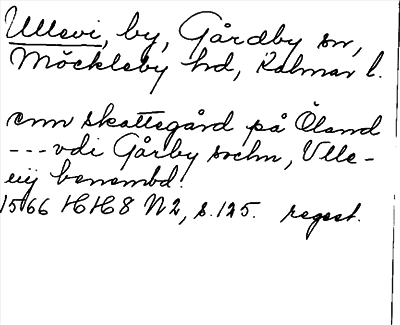 Ullevi, by, Gårdby sn,
Möckleby hd, Kalmar l.
enn skattegård på Öland
--- vdi Gårby sochn, Vlle-
uij benembd.
1566 HH8 N2, s. 125. regest.